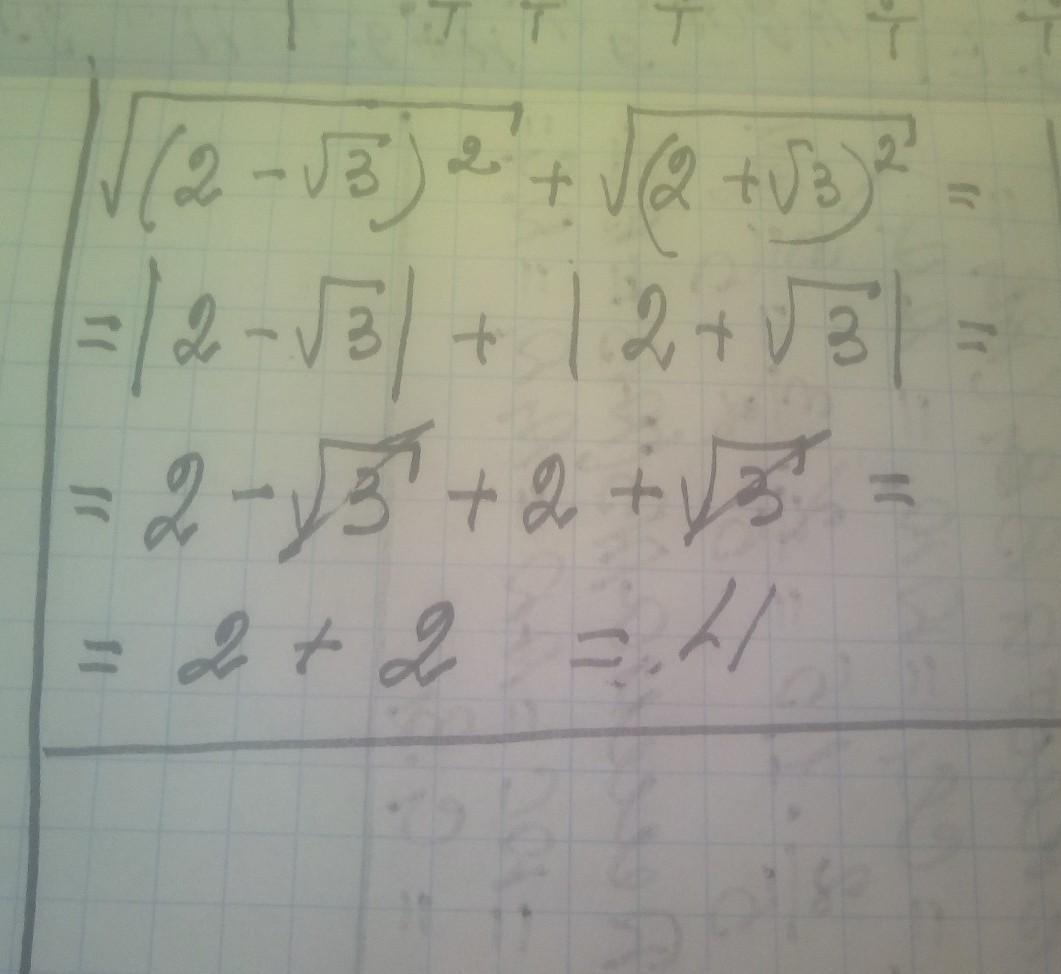 √(2 - √3)² + √(2 + √3)² =
= |2 - √3| + |2 + √3| =
= 2 - √3 + 2 + √3 =
= 2 + 2 = 4